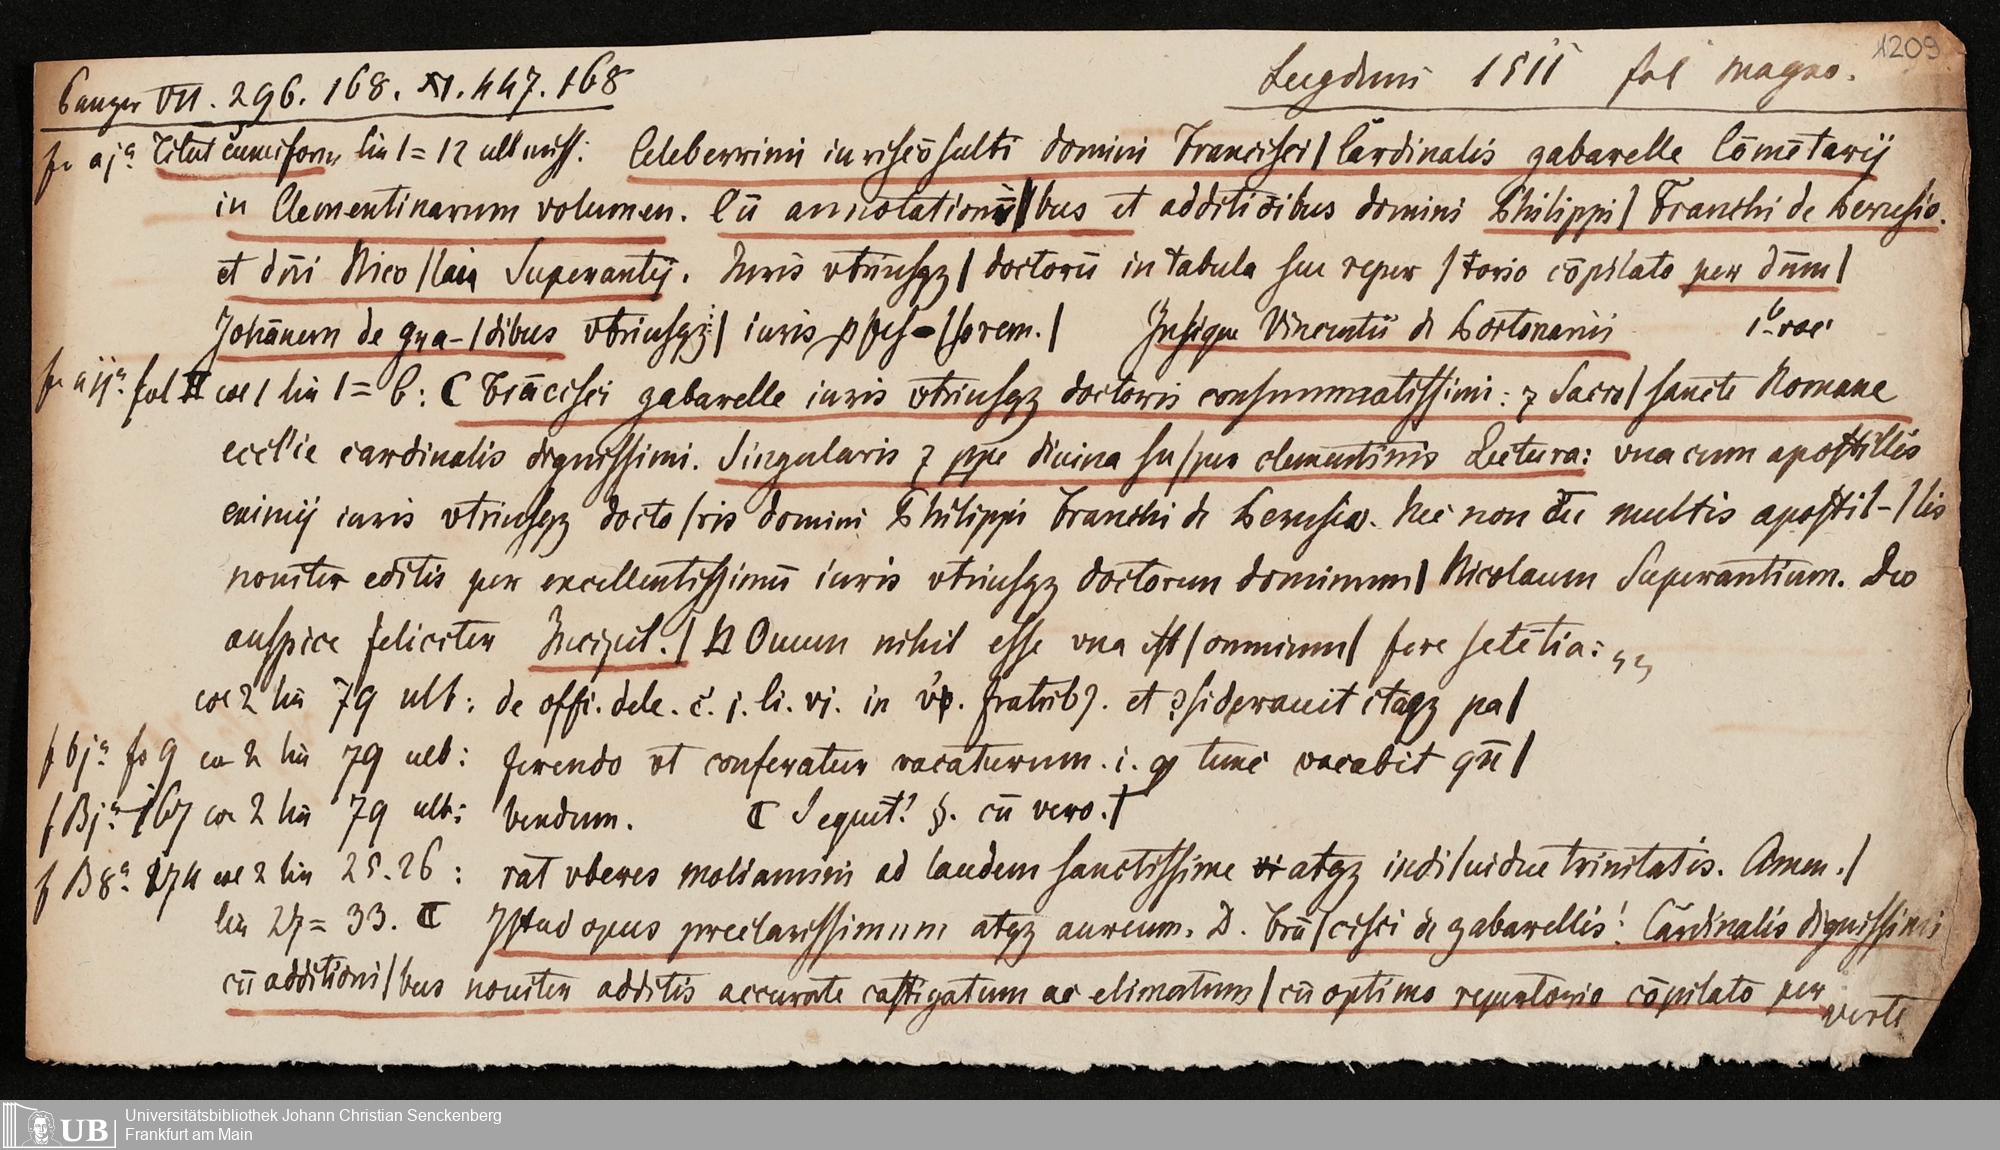 Panzer VII. 296. 168. XI. 447. 168
Lugduni 1511 fol magno.
1209
f. aj.ª Titul cuneiform lin 1=12 ult miss: Celeberrimi iuriscōsulti domini Francisci| Cardinalis zabarelle Cōmētarij
in Clementinarum volumen. Cū annotationi|bus et additiōibus domini Philippi| Franchi de Perusio.
et dñi Nico|lai Superantij. Iuris vtriusqz| doctorū in tabula siue reper|torio cōpilato per dūm|
Johānem de gra-|dibus vtriusqz| iuris pfes-|sorem.| Insigne Vincentii de Portonariis
f. aij.ª fol II col 1 lin 1=6: C Frācisci zabarelle iuris vtriusqz doctoris consummatissimi: ⁊ Sacro| sancte Romane
eccl'ie cardinalis dignissimi. Singularis ⁊ ppe diuina su|per clementinis Lectura: vna cum apostillis
eximij iuris vtriusqz docto|ris domini Philippi Franchi de Perusio. Nec non cū multis apostil-|lis
nouiter editis per excellentissimū iuris vtriusqz doctorem dominum| Nicolaum Superantium. Deo
auspice feliciter Incipit.| Quum nihil esse vna est|omnium| fere setētia:
col 2 lin 79 ult: de offi. dele. c. j. li. vj. in v. fratrib⁊. et ꝯsiderauit itaqz pa|
f bj.ª fo 9 col 2 lin 79 ult: ferendo vt conferatur vacaturum. i. q tunc vacabit qn̄|
f Bj.ª 167 col 2 lin 79 ult: bendum. C Sequit! §. cū vero.|
f B8.ª 174 col 2 lin 25.26: rat vberes moliamini ad laudem sanctissime atqz indi|uidue trinitatis. Amen.|
lin 27=33. C Istud opus preclarissimum atqz aureum. D. Frā|cisci de zabarellis! Cardinalis dignissimi
cū additioni|bus nouiter additis accurate castigatum ac elimatum| cū optimo repertorio cōpilato per
verte
UB
Universitätsbibliothek Johann Christian Senckenberg
Frankfurt am Main